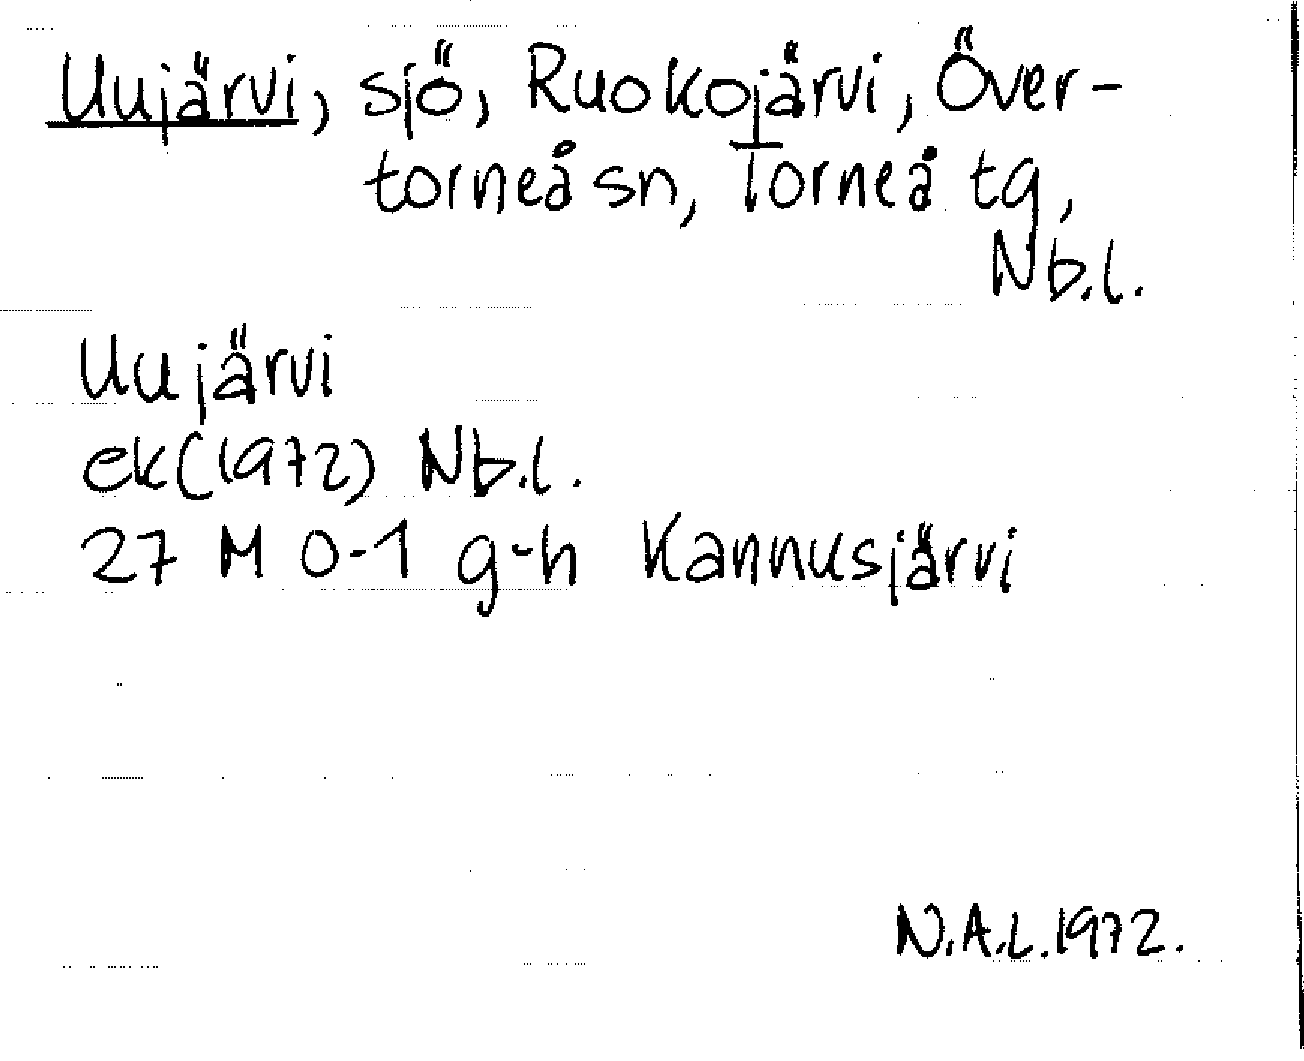 Uujärvi, sjö, Ruokojärvi, Över-
torneå sn, Torneå tg,
Nb.l.
Uujärvi
ek(1972) Nb.l.
27 M 0-1 g-h Kannusjärvi
N.A.L.1972.